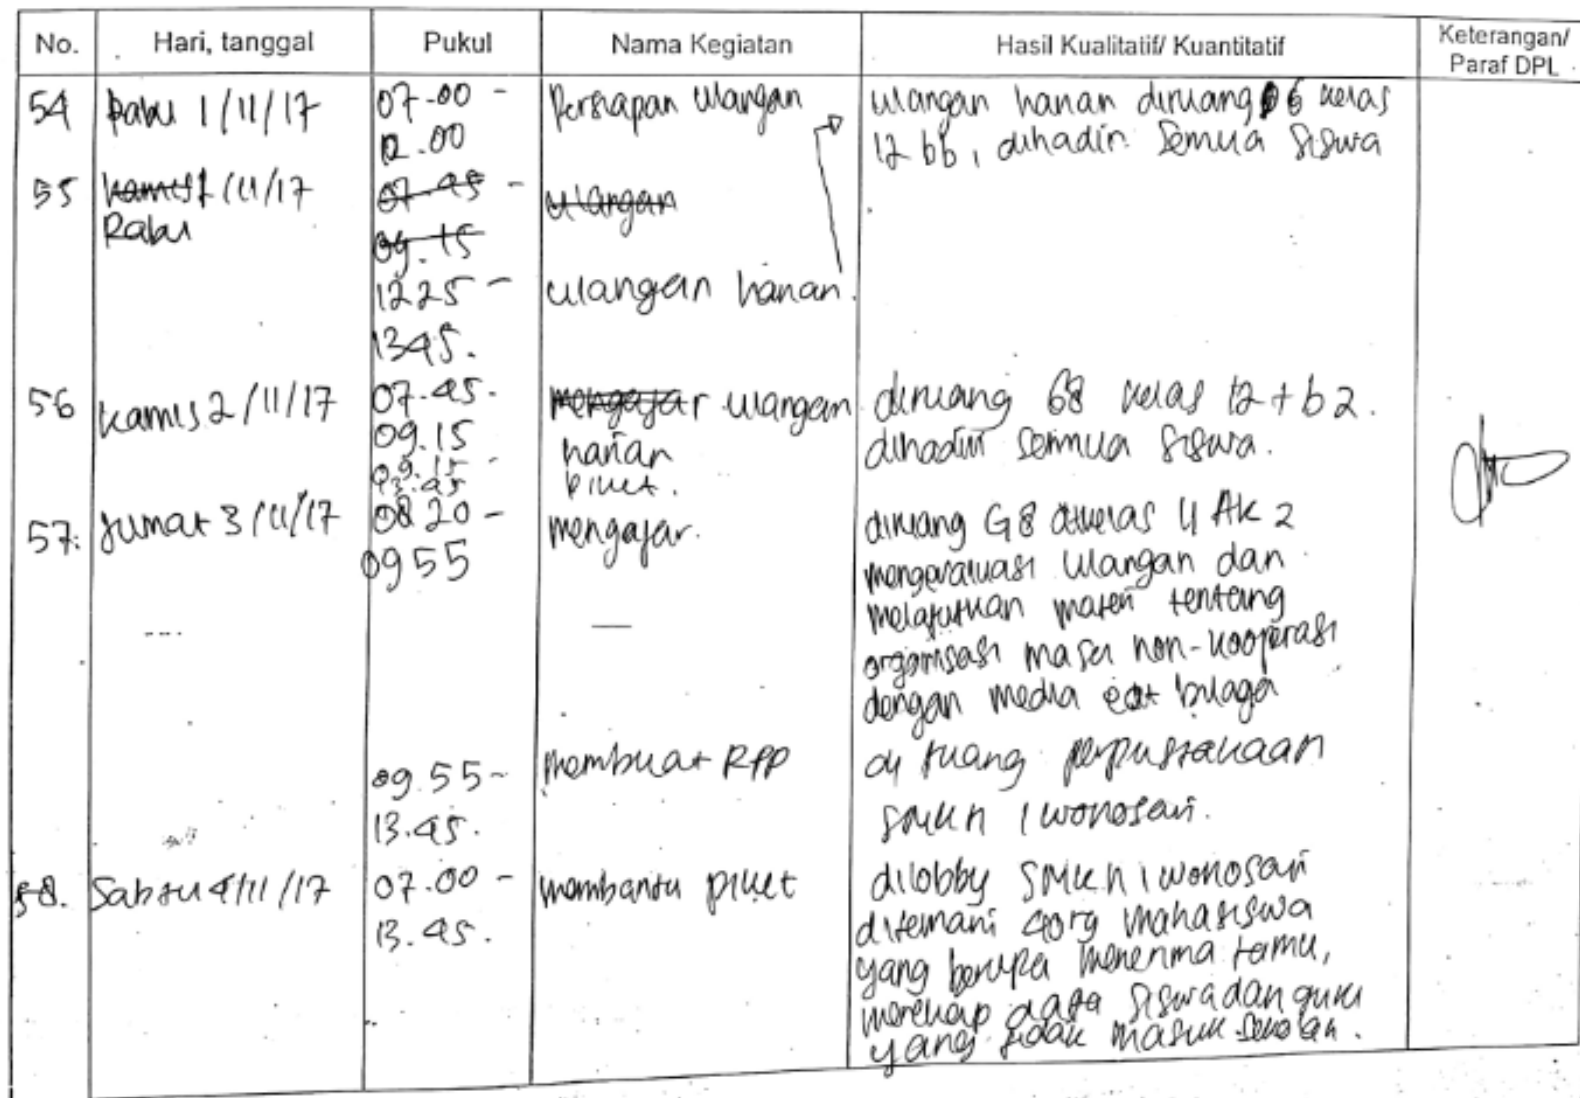 No. Hari, tanggal Pukul Nama Kegiatan Hasil Kualitatif/ Kuantitatif Keterangan/
Paraf DPL
54 Rabu 1/11/17 07.00 - Persiapan ulangan ulangan harian diruang 6 kelas
12.00 12 bb, dihadiri semua siswa
55 Kamis 2/11/17 07.45 - ulangan
Rabu 09.15
12.25 - ulangan harian.
13.45.
56 Kamis 2/11/17 07.45. mengajar ulangan diruang 68 kelas 12 + b 2.
09.15 harian dihadiri semua siswa.
09.15 -
13.45 piket.
57. Jumat 3/11/17 08 20 - mengajar. diruang G8 dikelas 11 AK 2
09 55 mengevaluasi ulangan dan
melanjutkan materi tentang
organisasi masa non-kooperasi
dengan media
09.55 - membuat RPP di ruang perpustakaan
13.45. SMK N 1 Wonosari.
58. Sabtu 4/11/17 07.00 - membantu piket dilobby SMK N 1 Wonosari
13.45. ditemani 4 org mahasiswa
yang berupa menerima tamu,
merekap data siswa dan guru
yang tidak masuk sekolah.